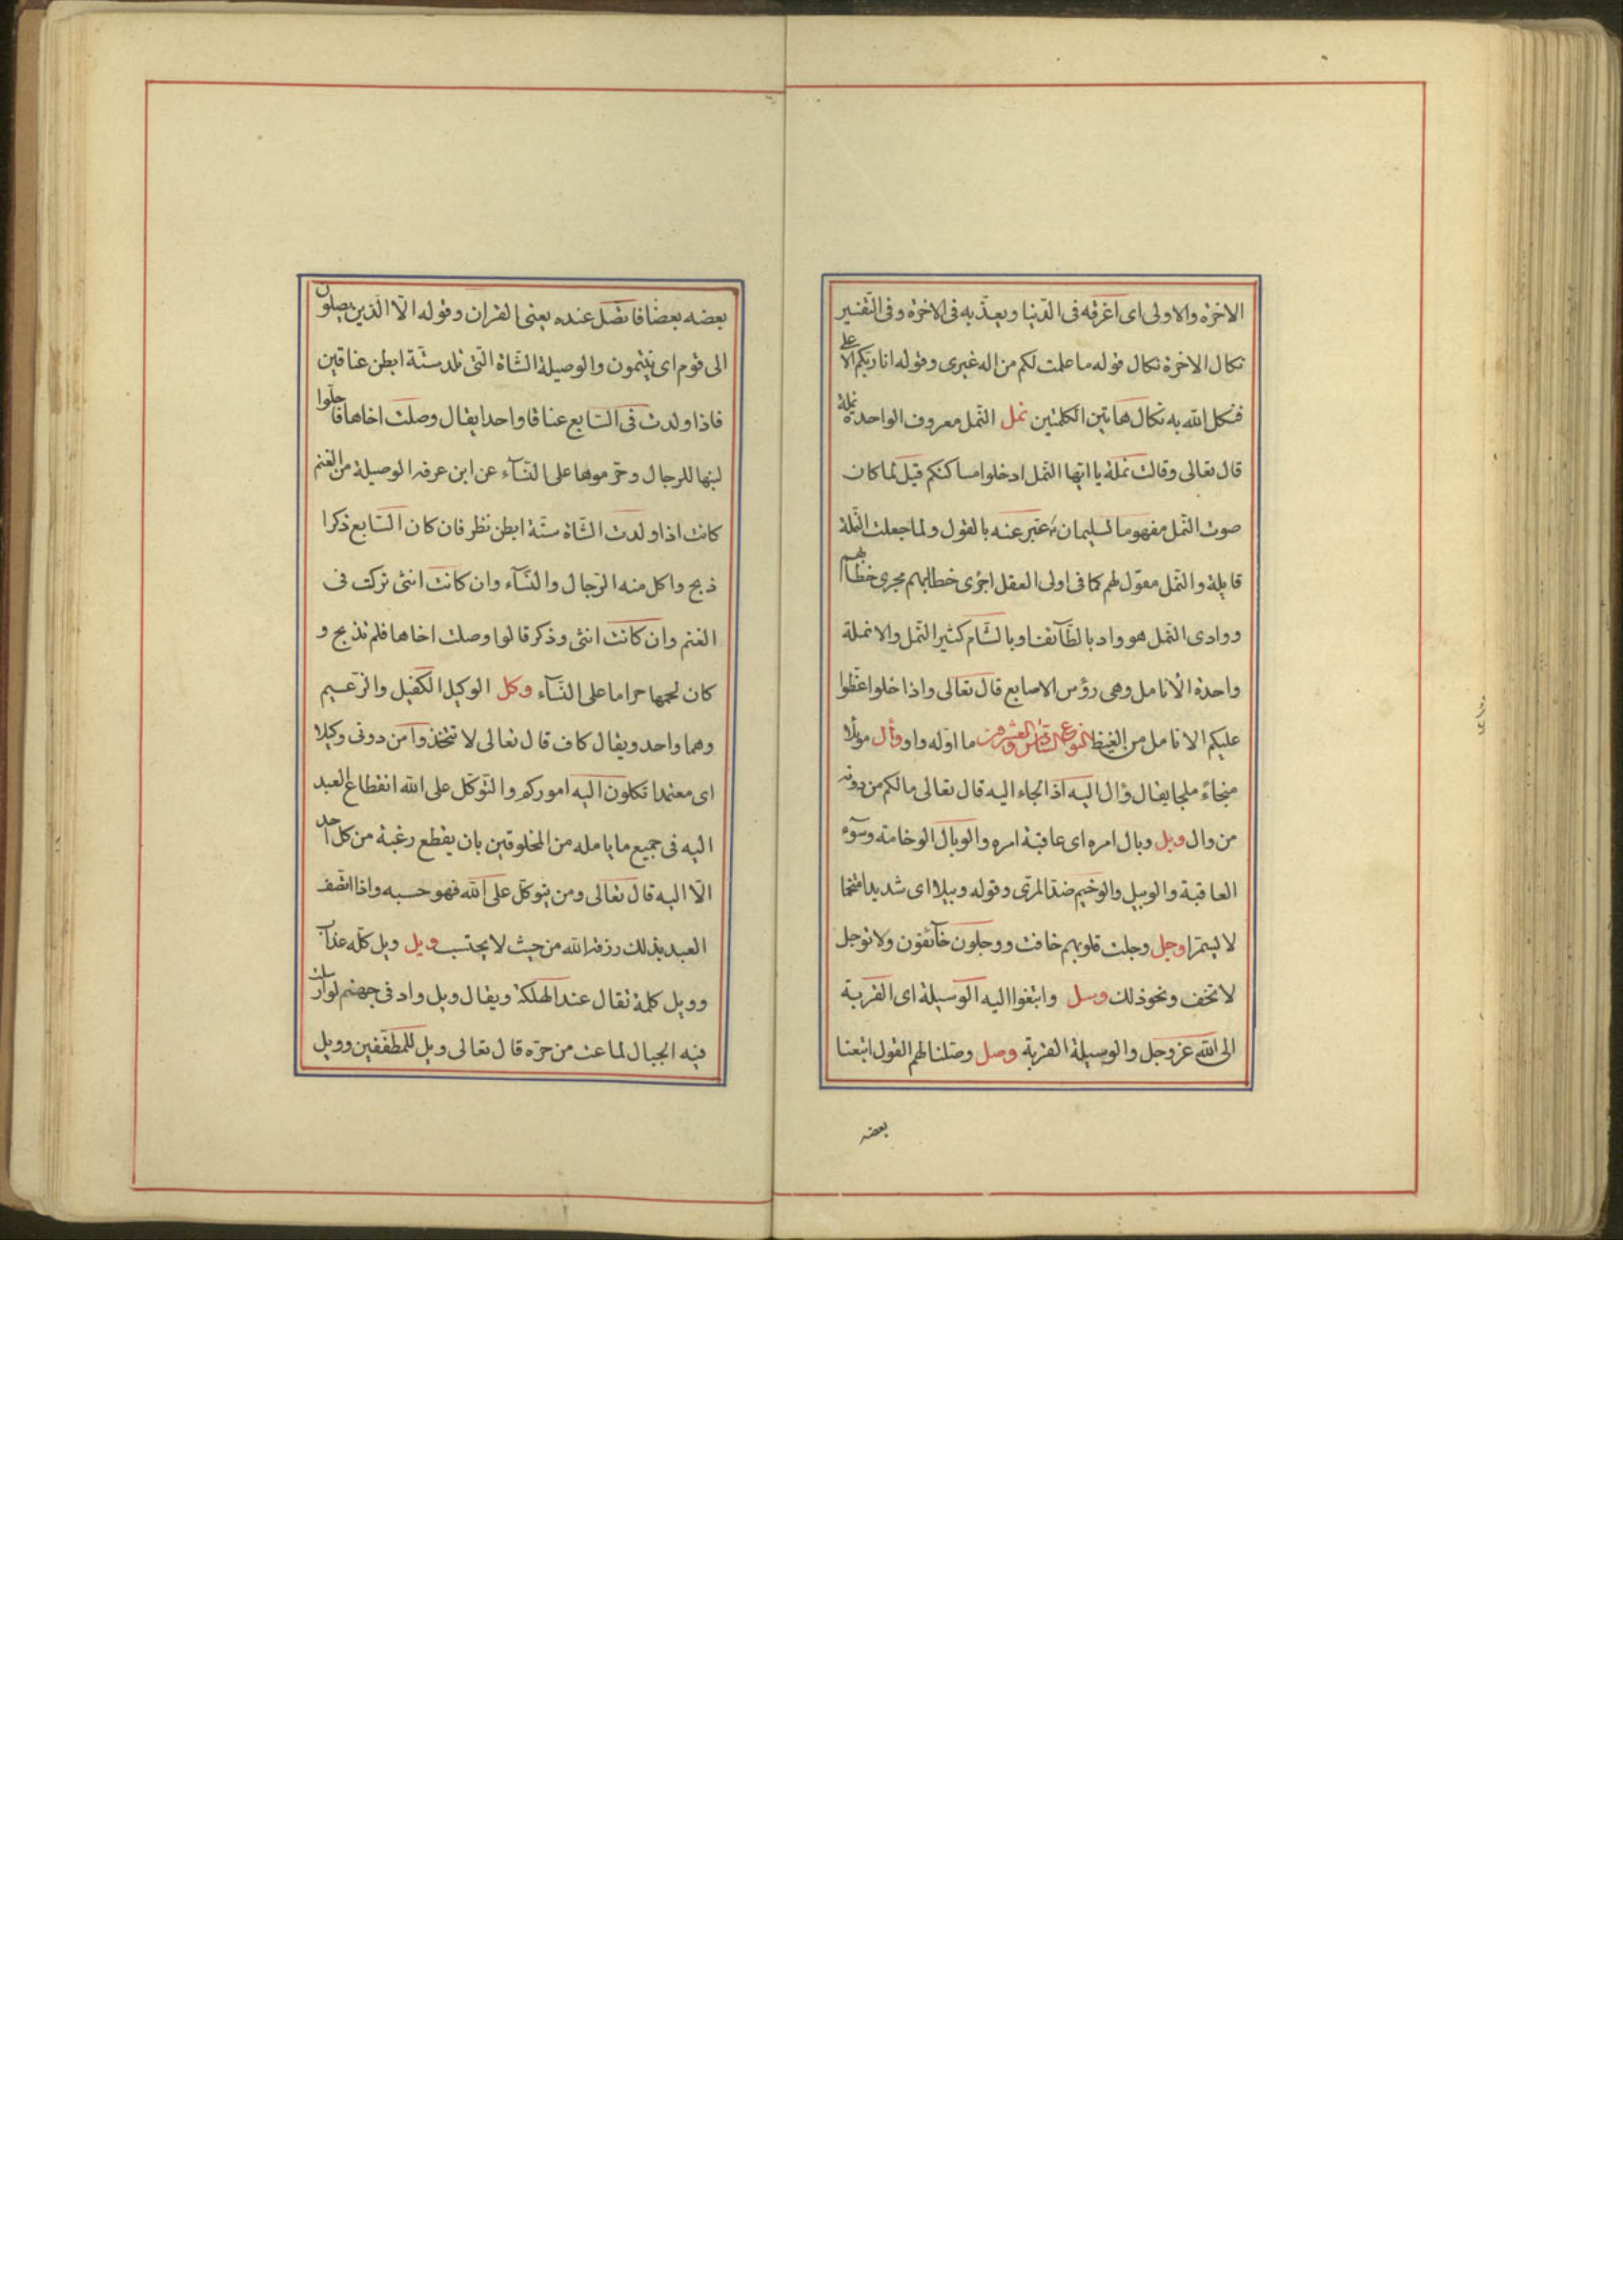 الاخرة والاولى اى اغرقه فى الدّنيا ويعذّبه فى الاخرة وفى التّفسير
نكال الاخرة نكال قوله ما علمت لكم من اله غيرى وقوله انا ربّكم الاعلى
فنكل الله به نكال هاتين الكلمتين نمل النّمل معروف الواحدة نملة
قال تعالى وقالت نملة يا ايّها النّمل ادخلوا مساكنكم قيل لما كان
صوت النّمل مفهوما لسليمان عبّر عنه بالقول ولما جعلت النّملة
قايلة والنّمل مقول لهم كما فى اولى العقل اجرى خطابهم مجرى خطابهم
ووادى النّمل هو واد بالطّآئف او بالشّام كثير النّمل والانملة
واحدة الانامل وهى رؤس الاصابع قال تعالى واذا خلوا عضّوا
عليكم الانامل من الغيظ النوع السّادس والعشرون ما اوّله واو وأل موئلا
منجاءً ملجا يقال وال اليه اذا لجاء اليه قال تعالى ما لكم من دونه
من وال وبل وبال امره اى عاقبة امره والوبال الوخامة وسوٓء
العاقبة والوبيل والوخيم ضدّ المرى وقوله وبيلا اى شديدا متخما
لا يستمرا وجل وجلت قلوبهم خافت ووجلون خآئفون ولا توجل
لا تخف ونحو ذلك وسل وابتغوا اليه الوسيلة اى القربة
الى الله عز وجل والوسيلة القربة وصل وصّلنا لهم القول اتبعنا
بعضه
بعضه بعضا فاتصل عنده يعنى القران وقوله الّا الّذين يصلون
الى قوم اى ينتمون والوصيلة الشّاة الّتى تلد ستّة ابطن عناقين
فاذا ولدت فى السّابع عناقا واحدا يقال وصلت اخاها فاحلّوا
لبنها للرجال وحرّموها على النّسآء عن ابن عرفه الوصيلة من الغنم
كانت اذا ولدت الشّاة ستّة ابطن نظر فان كان السّابع ذكرا
ذبح واكل منه الرّجال والنّسآء وان كانت انثى تركت فى
الغنم وان كانت انثى وذكر قالوا وصلت اخاها فلم تذبح و
كان لحمها حراما على النّسآء وكل الوكيل الكفيل والزّعيم
وهما واحد ويقال كاف قال تعالى لا تتّخذوا من دونى وكيلا
اى معتمدا تكلون اليه اموركم والتّوكّل على الله انقطاع العبد
اليه فى جميع ما يامله من المخلوقين بان يقطع رغبة من كل احد
الّا اليه قال تعالى ومن يتوكّل على الله فهو حسبه واذا اتّصف
العبد بذلك رزقه الله من حيث لا يحتسب ويل ويل كلّه عذاب
وويل كلمة تقال عند الهلكة ويقال ويل واد فى جهنم لو ارسلت
فيه الجبال لماعت من حرّه قال تعالى ويل للمطفّفين وويل